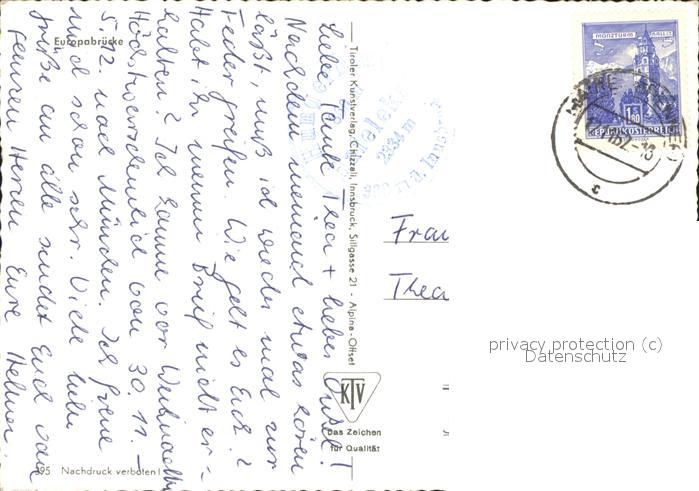 Europabrücke
Liebe Tante Thea + lieber Onkel!
Nachdem niemand etwas hören
läßt, muß ich wieder mal zur
Feder greifen. Wie geht es Euch?
Habt ihr meinen Brief nicht er-
halten? Ich komme vor Weihnachten
Höchstwahrscheinlich von 30. 11. –
5. 12. nach München. Ich freue
mich schon sehr. Viele liebe
Grüße an alle sendet Euch von
ganzem Herzen Eure Helma
395 Nachdruck verboten!
Tiroler Kunstverlag, Chizzali, Innsbruck, Sillgasse 21 - Alpina-Offset
2334 m
Innsbruck
KTV
Das Zeichen
für Qualität
MÜNZTURM HALL I. T.
S 1.50
REPUBLIK ÖSTERREICH
Frau
Thea
privacy protection (c)
Datenschutz